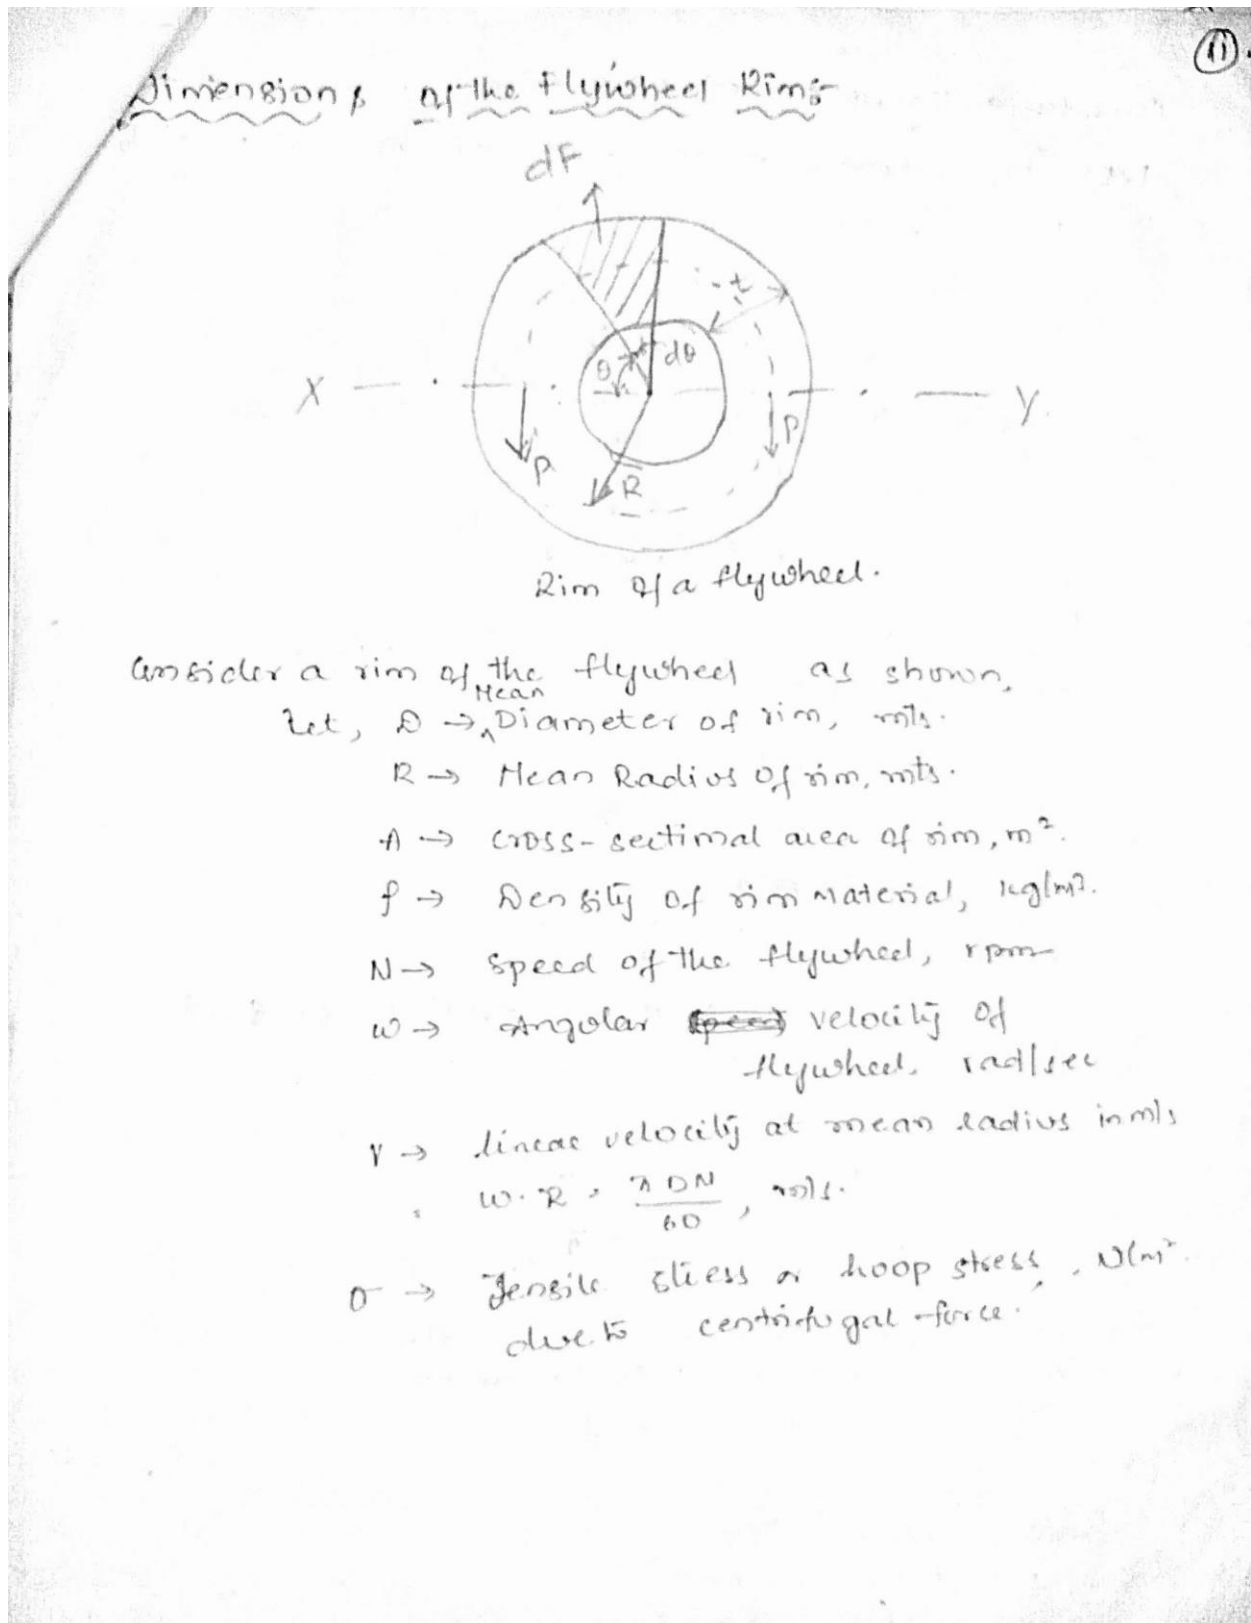 11.
Dimensions of the Flywheel Rim:-
dF
t
θ dθ
X Y
P P
R
Rim of a flywheel.
Consider a rim of the flywheel as shown.
Let, D → Mean Diameter of rim, mts.
R → Mean Radius of rim, mts.
A → cross-sectional area of rim, m².
ρ → Density of rim Material, kg/m³.
N → Speed of the flywheel, rpm
ω → Angular velocity of
flywheel, rad/sec
V → linear velocity at mean radius in m/s
= ω.R = πDN/60, m/s.
σ → Tensile stress or hoop stress, N/m².
due to centrifugal force.